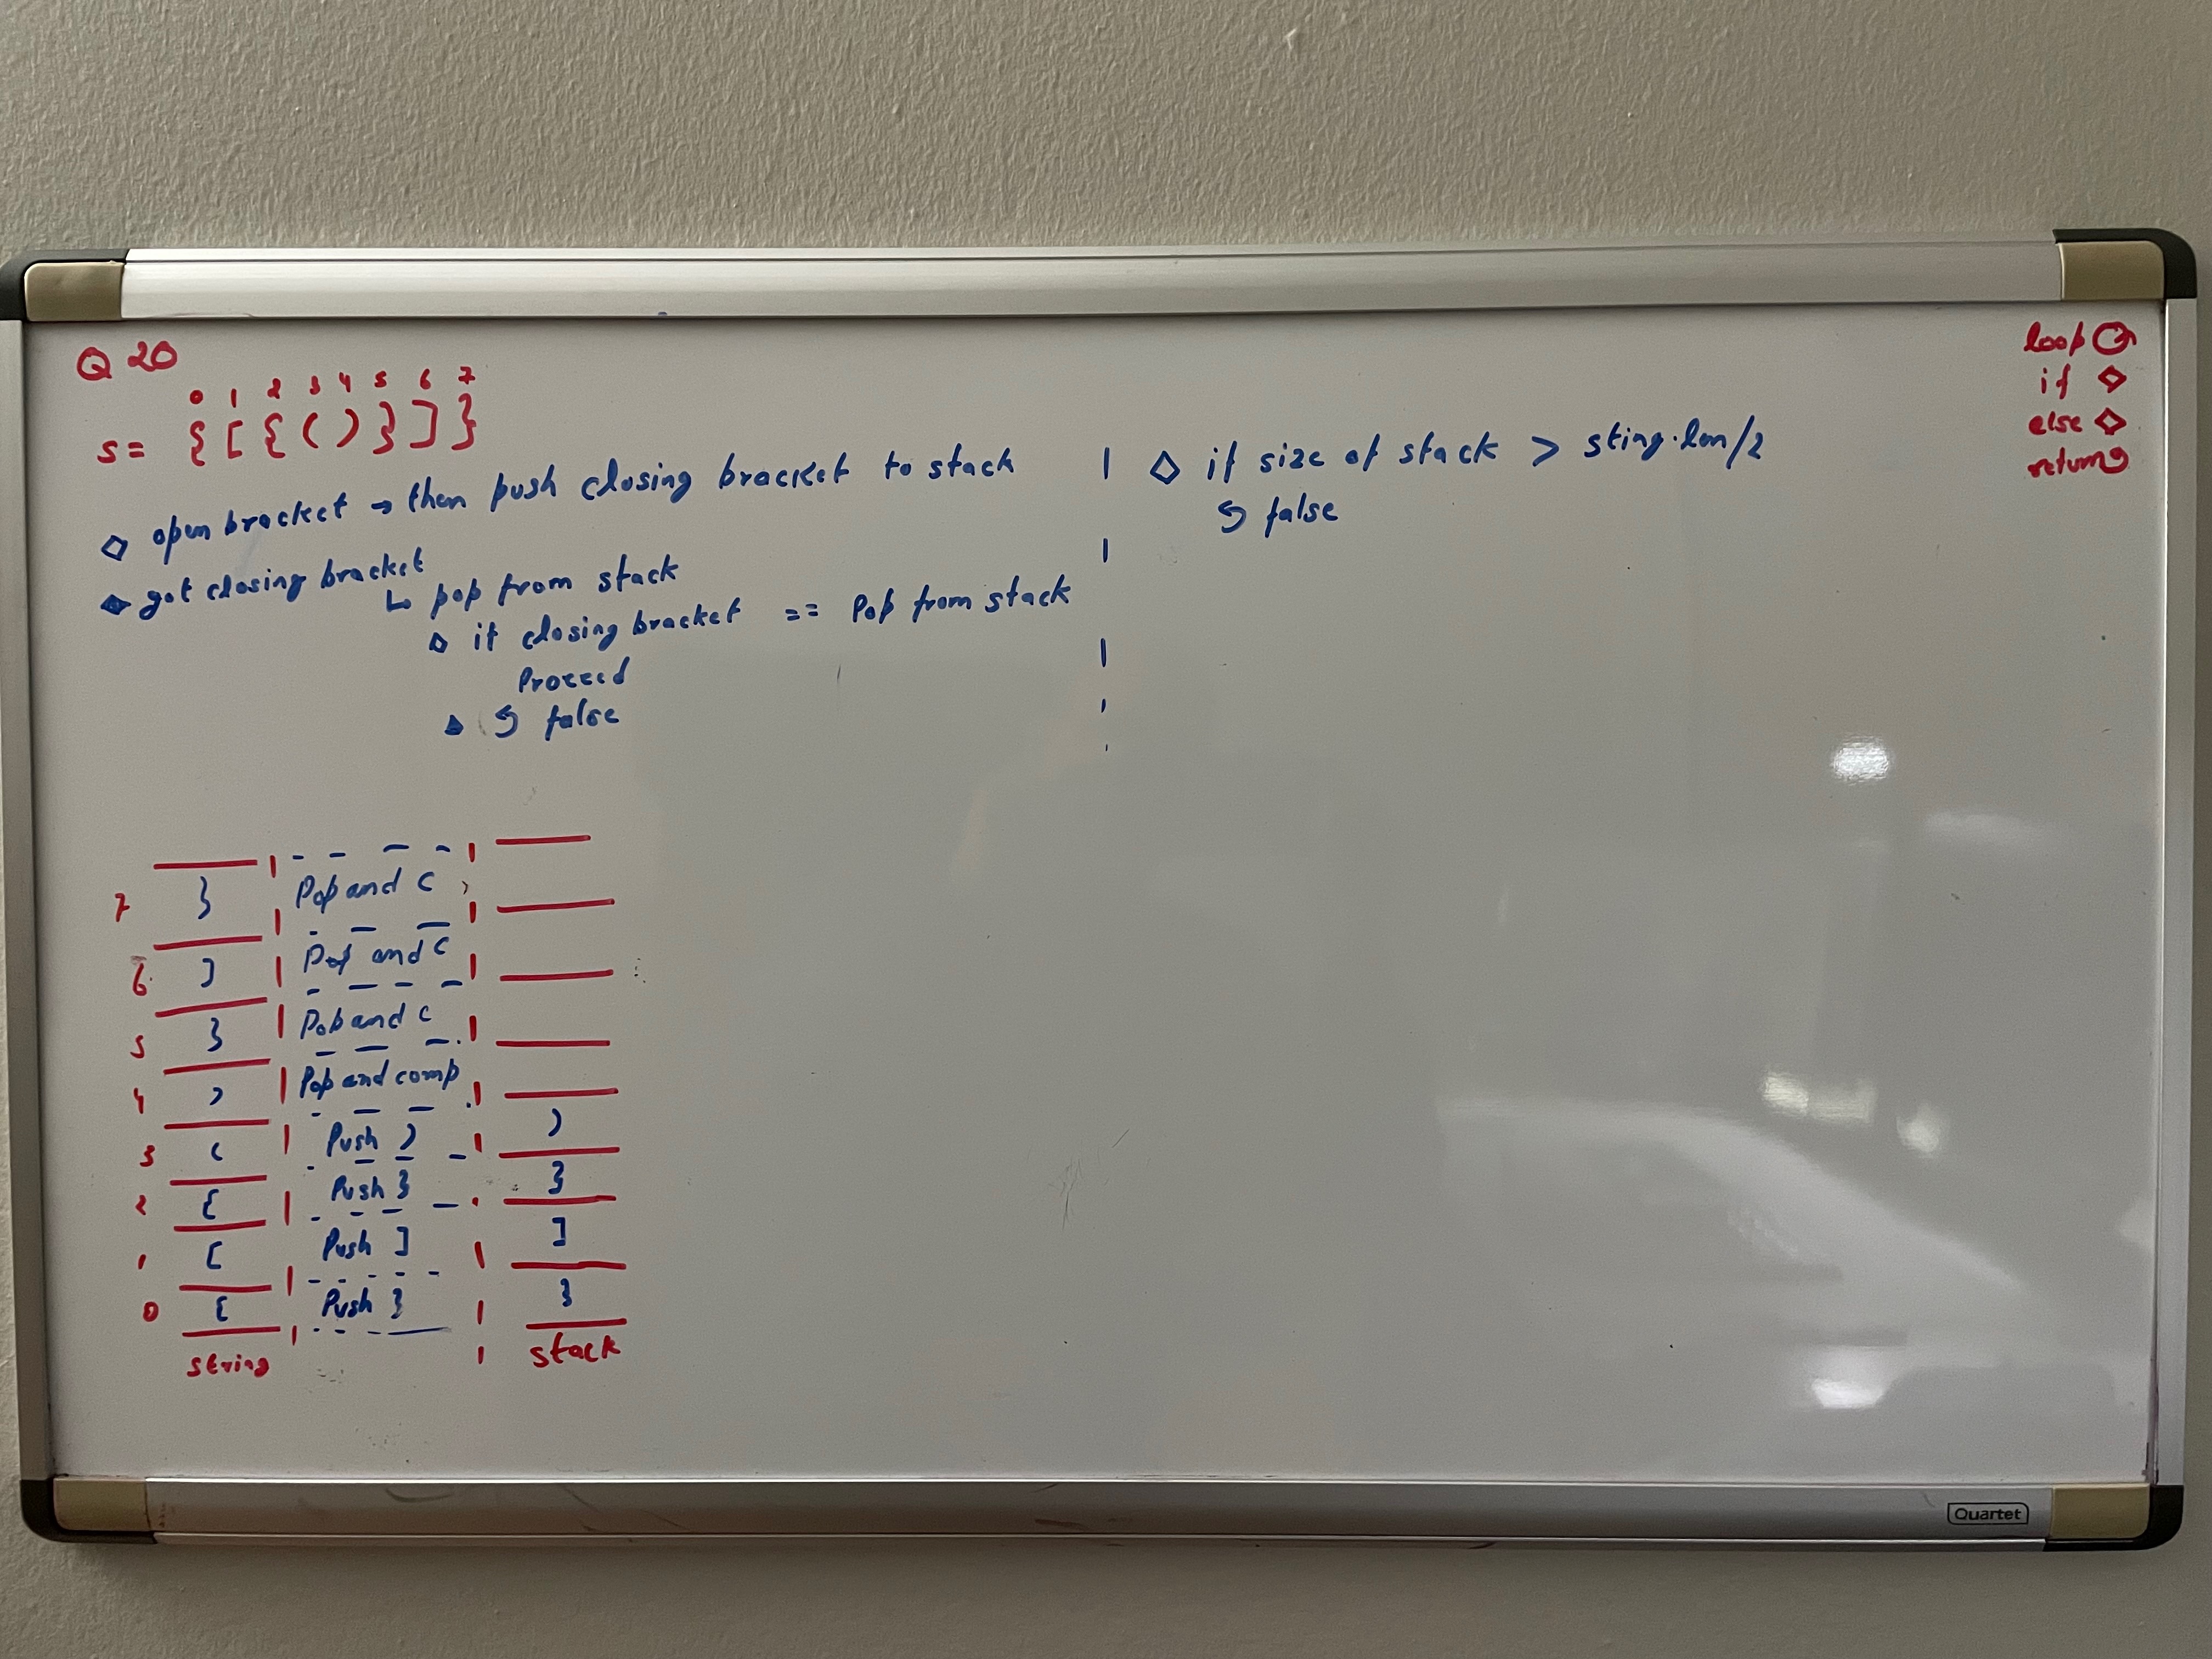 Q 20
0 1 2 3 4 5 6 7
s = { [ { ( ) } ] }
open bracket → then push closing bracket to stack
got closing bracket
↳ pop from stack
if closing bracket == Pop from stack
Proceed
false
if size of stack > sting.len/2
false
loop
if
else
return
7 } Pop and C
6 ] Pop and C
5 } Pop and C
4 ) Pop and comp
3 ( Push ) )
2 { Push } }
1 [ Push ] ]
0 { Push } }
string stack
Quartet